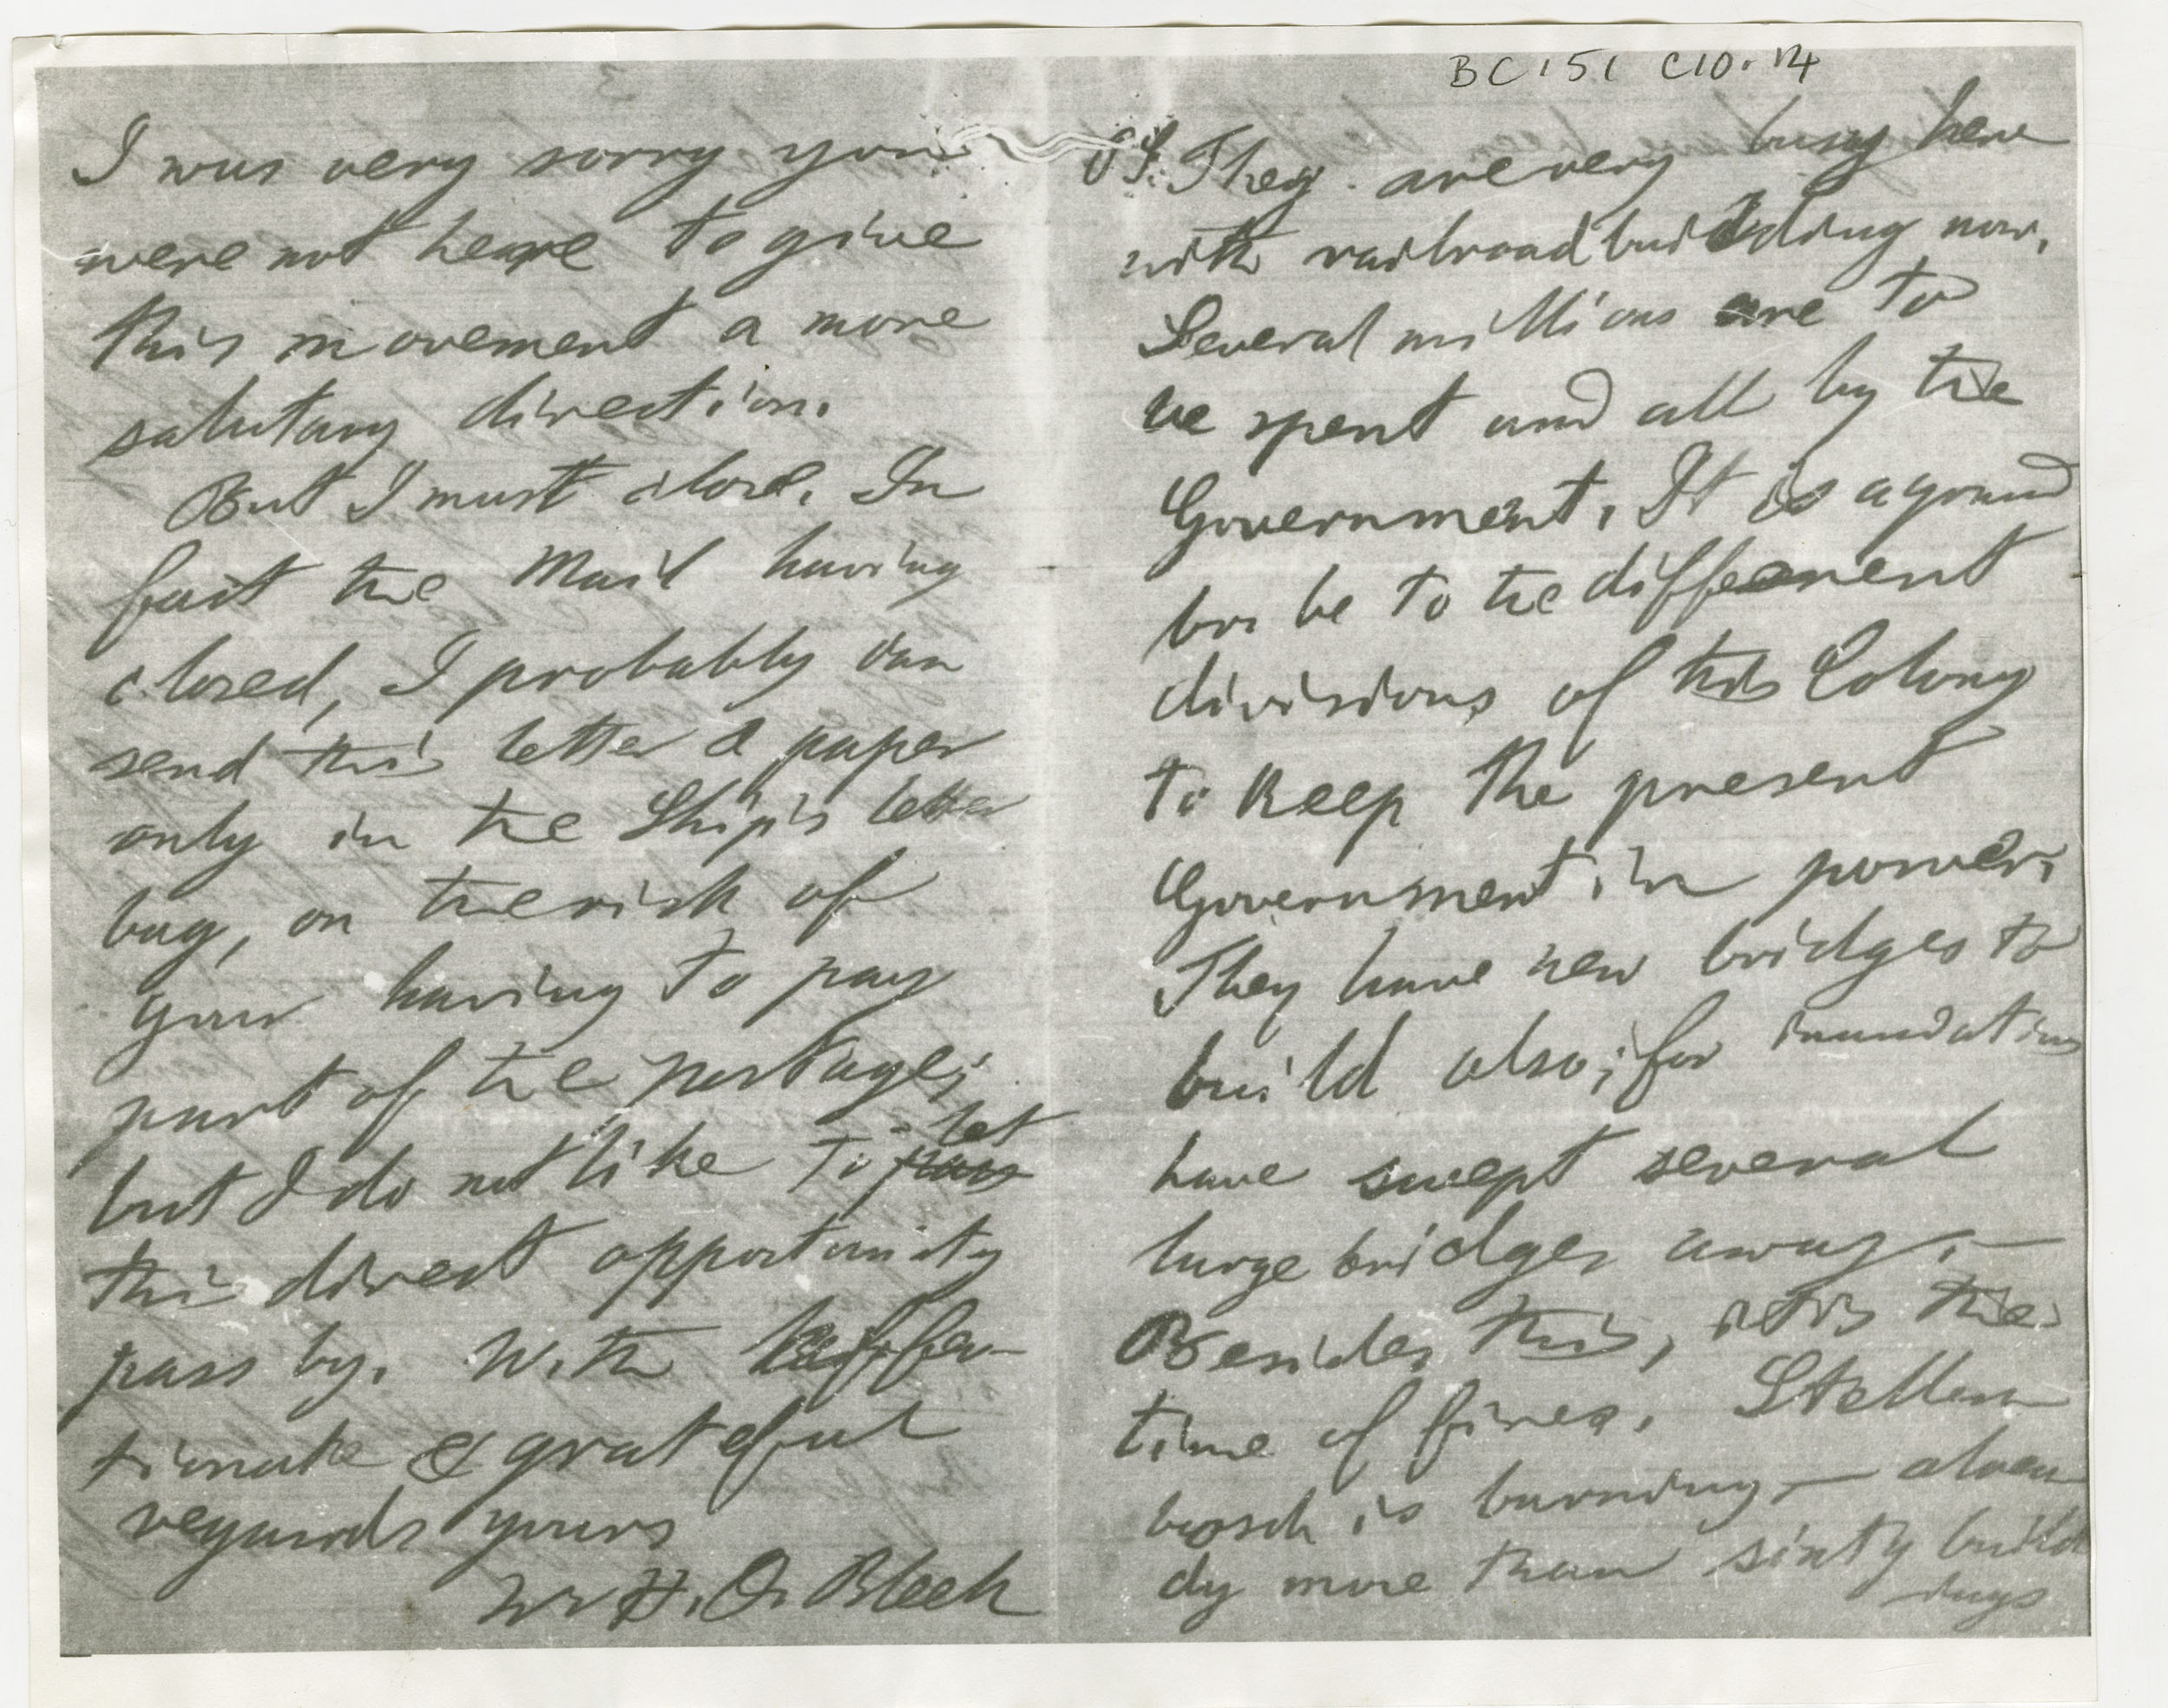 BC151 C10.14
I was very sorry you
were not here to give
this movement a more
salutary direction.
But I must close. In
fact the Mail having
closed, I probably can
send this letter & paper
only in the Ship's letter
bag, on the risk of
your having to pay
part of the postage;
let
but I do not like to pass
this direct opportunity
pass by. With affec-
tionate & grateful
regards yours
W. H. I. Bleek
PS. They are very busy here
with railroad building now.
Several millions are to
be spent and all by the
Government. It is a grand
bribe to the different
divisions of this Colony
to keep the present
Government in power.
They have new bridges to
build also; for inundations
have swept several
large bridges away. —
Besides this, it is the
time of fires. Stellen
bosch is burning, — alrea
dy more than sixty build
ings